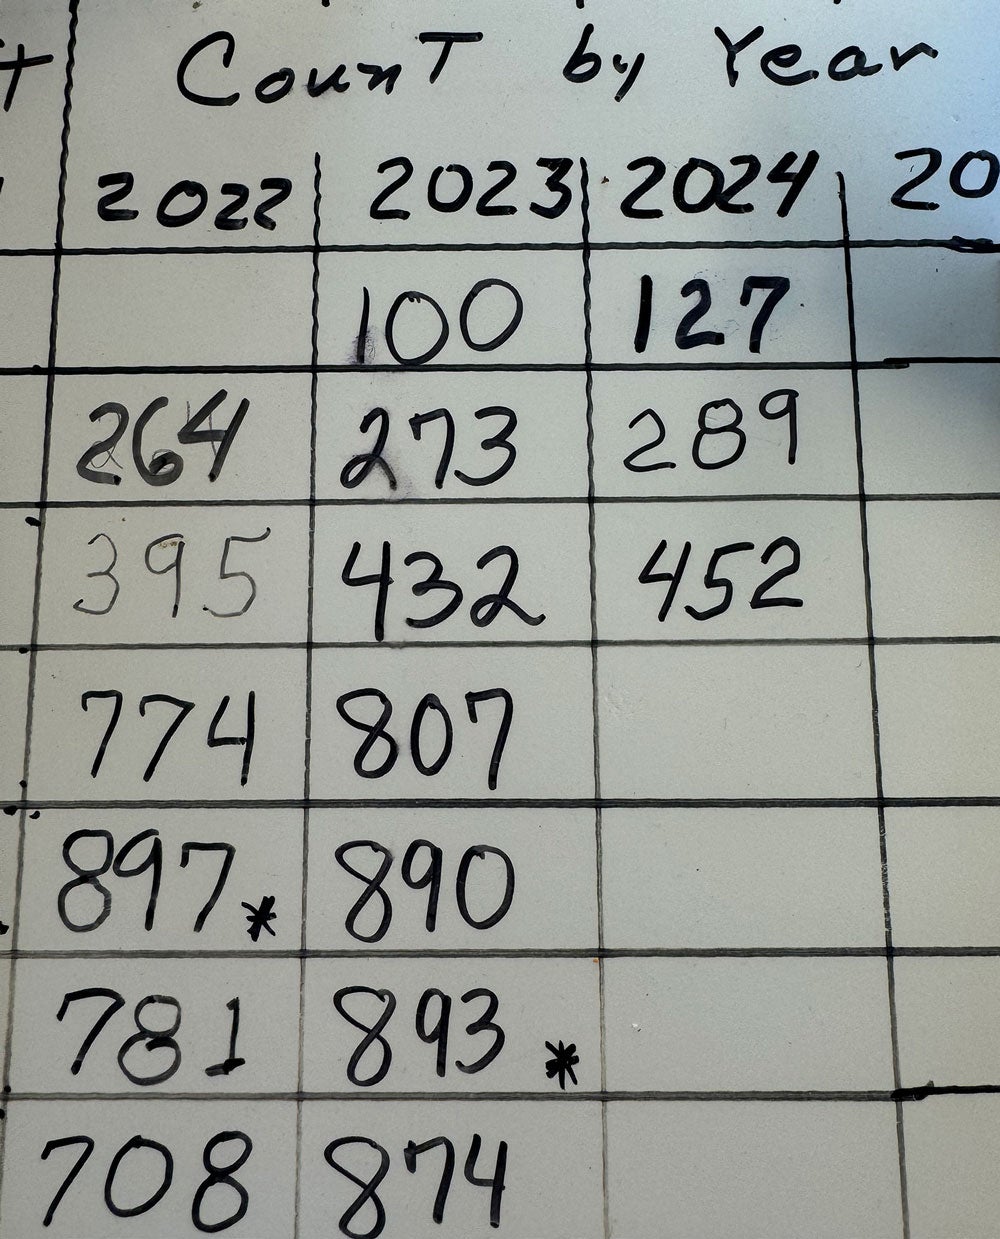 Count by Year
2022 2023 2024 20
100 127
264 273 289
395 432 452
774 807
897* 890
781 893 *
708 874